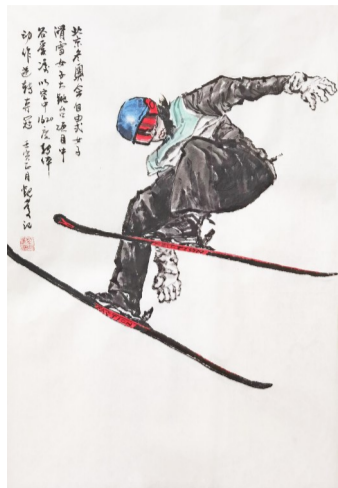 北京冬奥会自由式女子
滑雪女子大跳台项目中
谷爱凌以空中1620度转体
动作逆转夺冠
壬寅正月